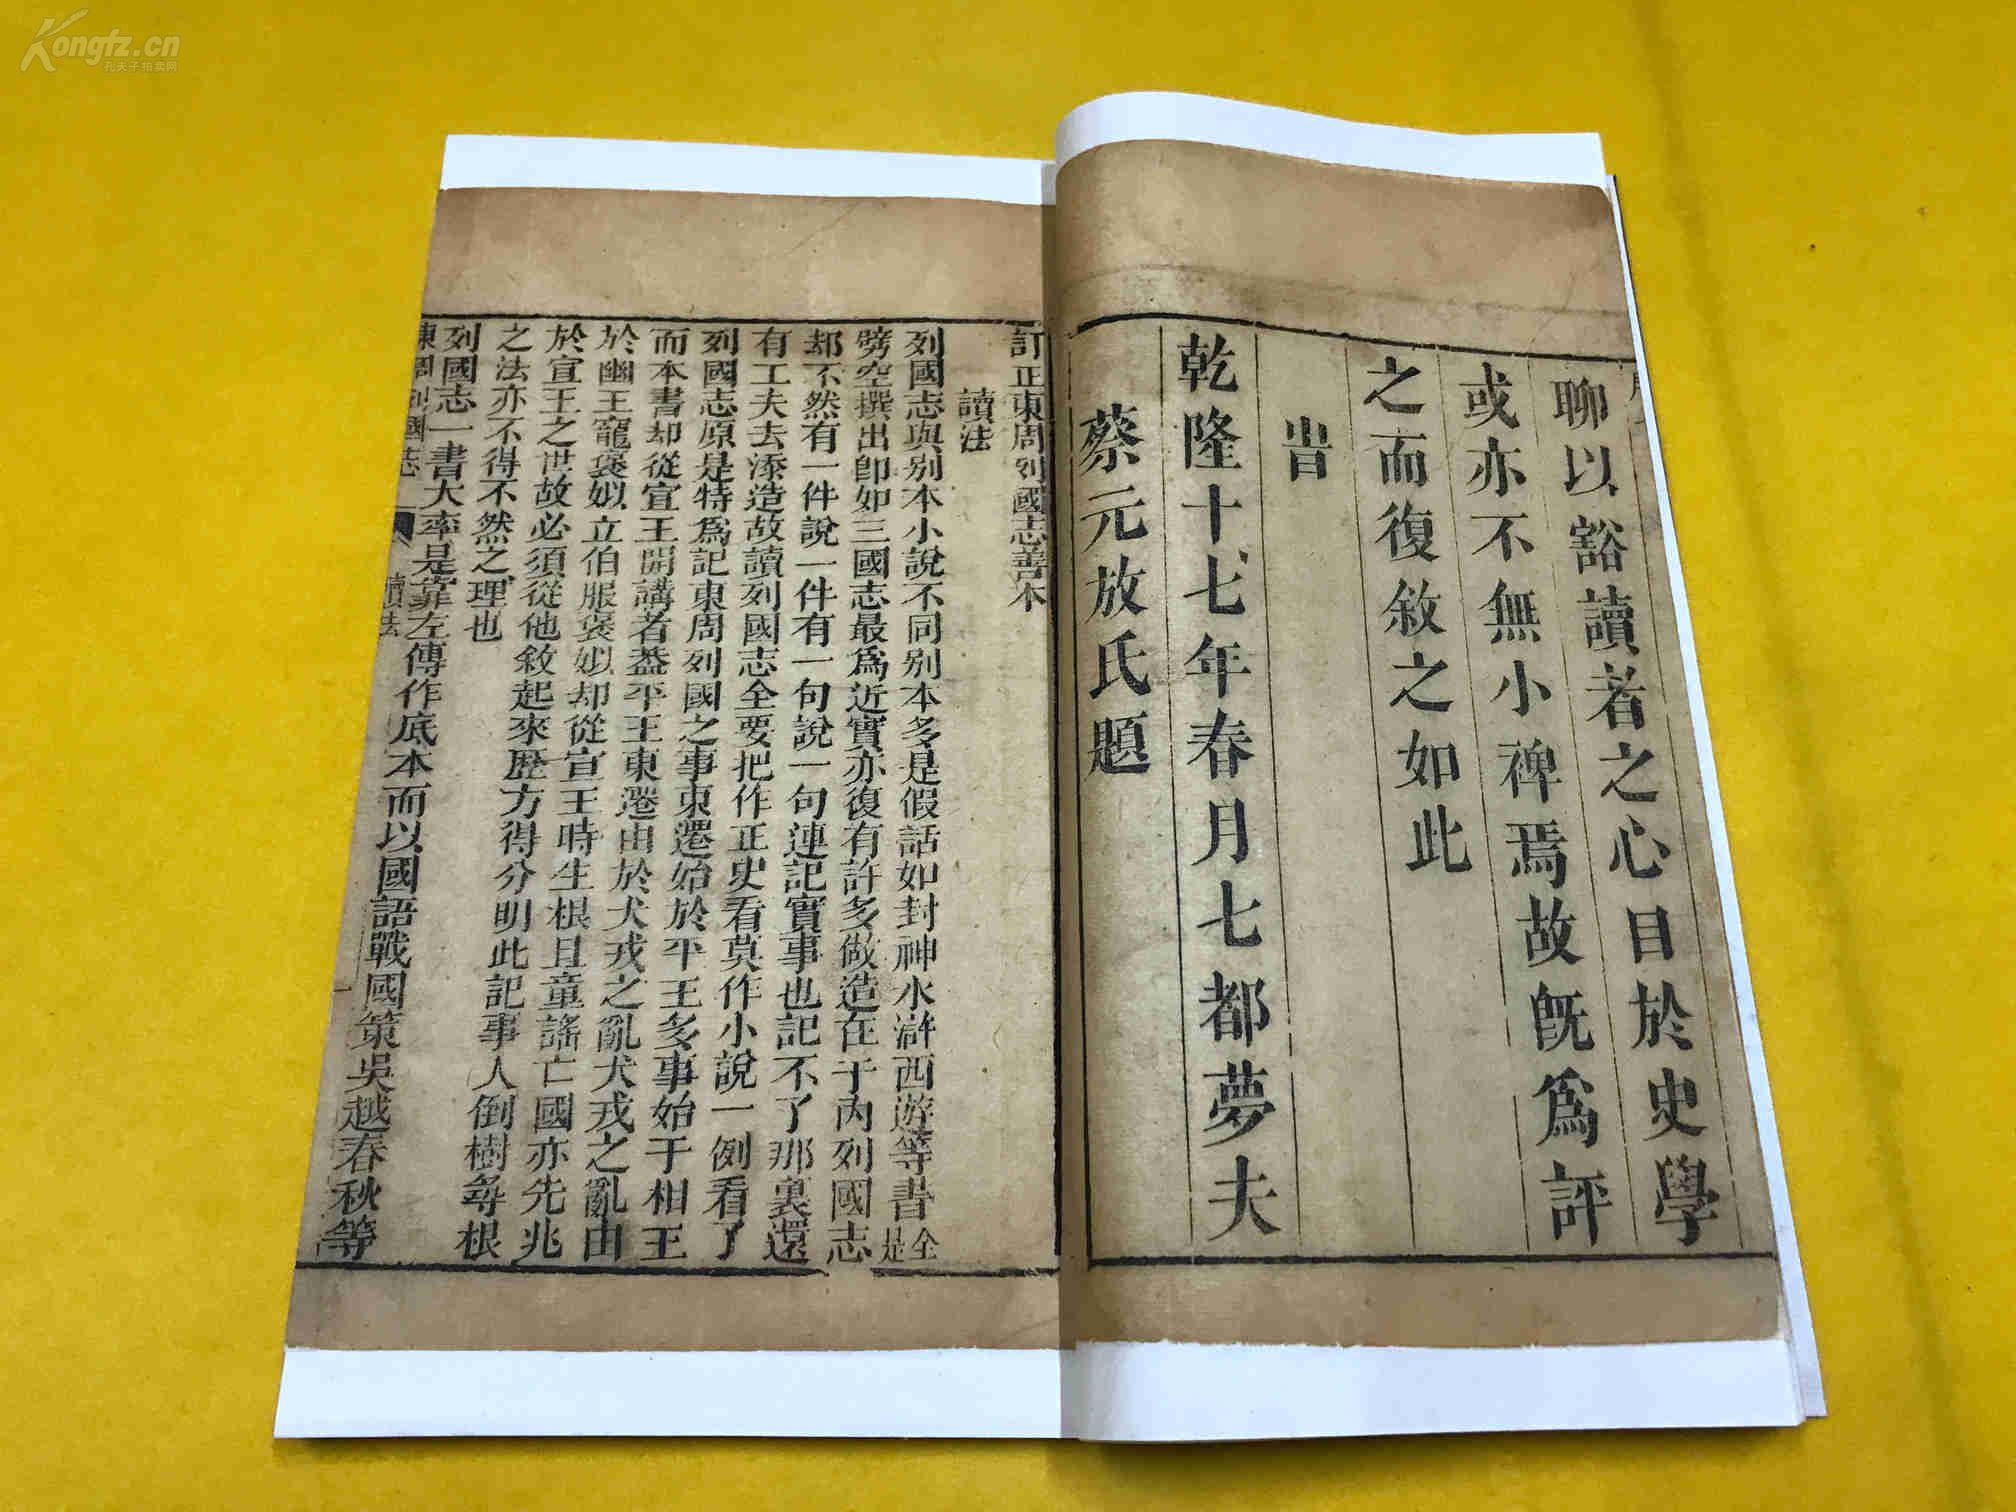 Kongfz.cn
孔夫子拍卖网
聊以豁讀者之心目於史學
或亦不無小裨焉故旣爲評
之而復敘之如此
旹
乾隆十七年春月七都夢夫
蔡元放氏題
訂正東周列國志善本
讀法
列國志與别本小說不同别本多是假話如封神水滸西遊等書全是
劈空撰出卽如三國志最爲近實亦復有許多做造在于內列國志
却不然有一件說一件有一句說一句連記實事也記不了那裏還
有工夫去添造故讀列國志全要把作正史看莫作小說一例看了
列國志原是特爲記東周列國之事東遷始於平王多事始于相王
而本書却從宣王開講者葢平王東遷由於犬戎之亂犬戎之亂由
於幽王寵褒姒立伯服褒姒却從宣王時生根且童謠亡國亦先兆
於宣王之世故必須從他敘起來歷方得分明此記事人倒樹尋根
之法亦不得不然之理也
列國志一書大率是靠左傳作底本而以國語戰國策吳越春秋等
東周列國志
讀法
一